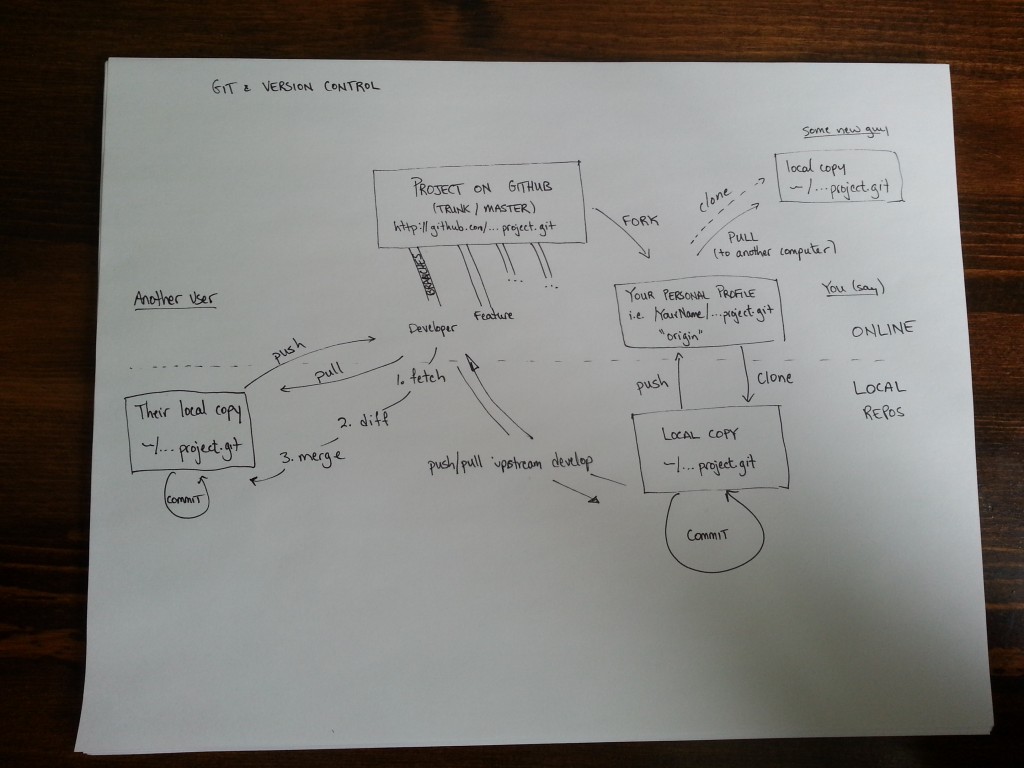 GIT & VERSION CONTROL
some new guy
local copy
~/...project.git
PROJECT ON GITHUB
(TRUNK / MASTER)
http://github.com/...project.git
FORK
clone
PULL
(to another computer)
Another User
Developer
Feature
...
...
YOUR PERSONAL PROFILE
i.e. /YourName/...project.git
"origin"
You (say)
ONLINE
push
pull
1. fetch
2. diff
3. merge
push
Clone
LOCAL
REPOS
Their local copy
~/... project.git
COMMIT
push/pull upstream develop
LOCAL COPY
~/...project.git
COMMIT